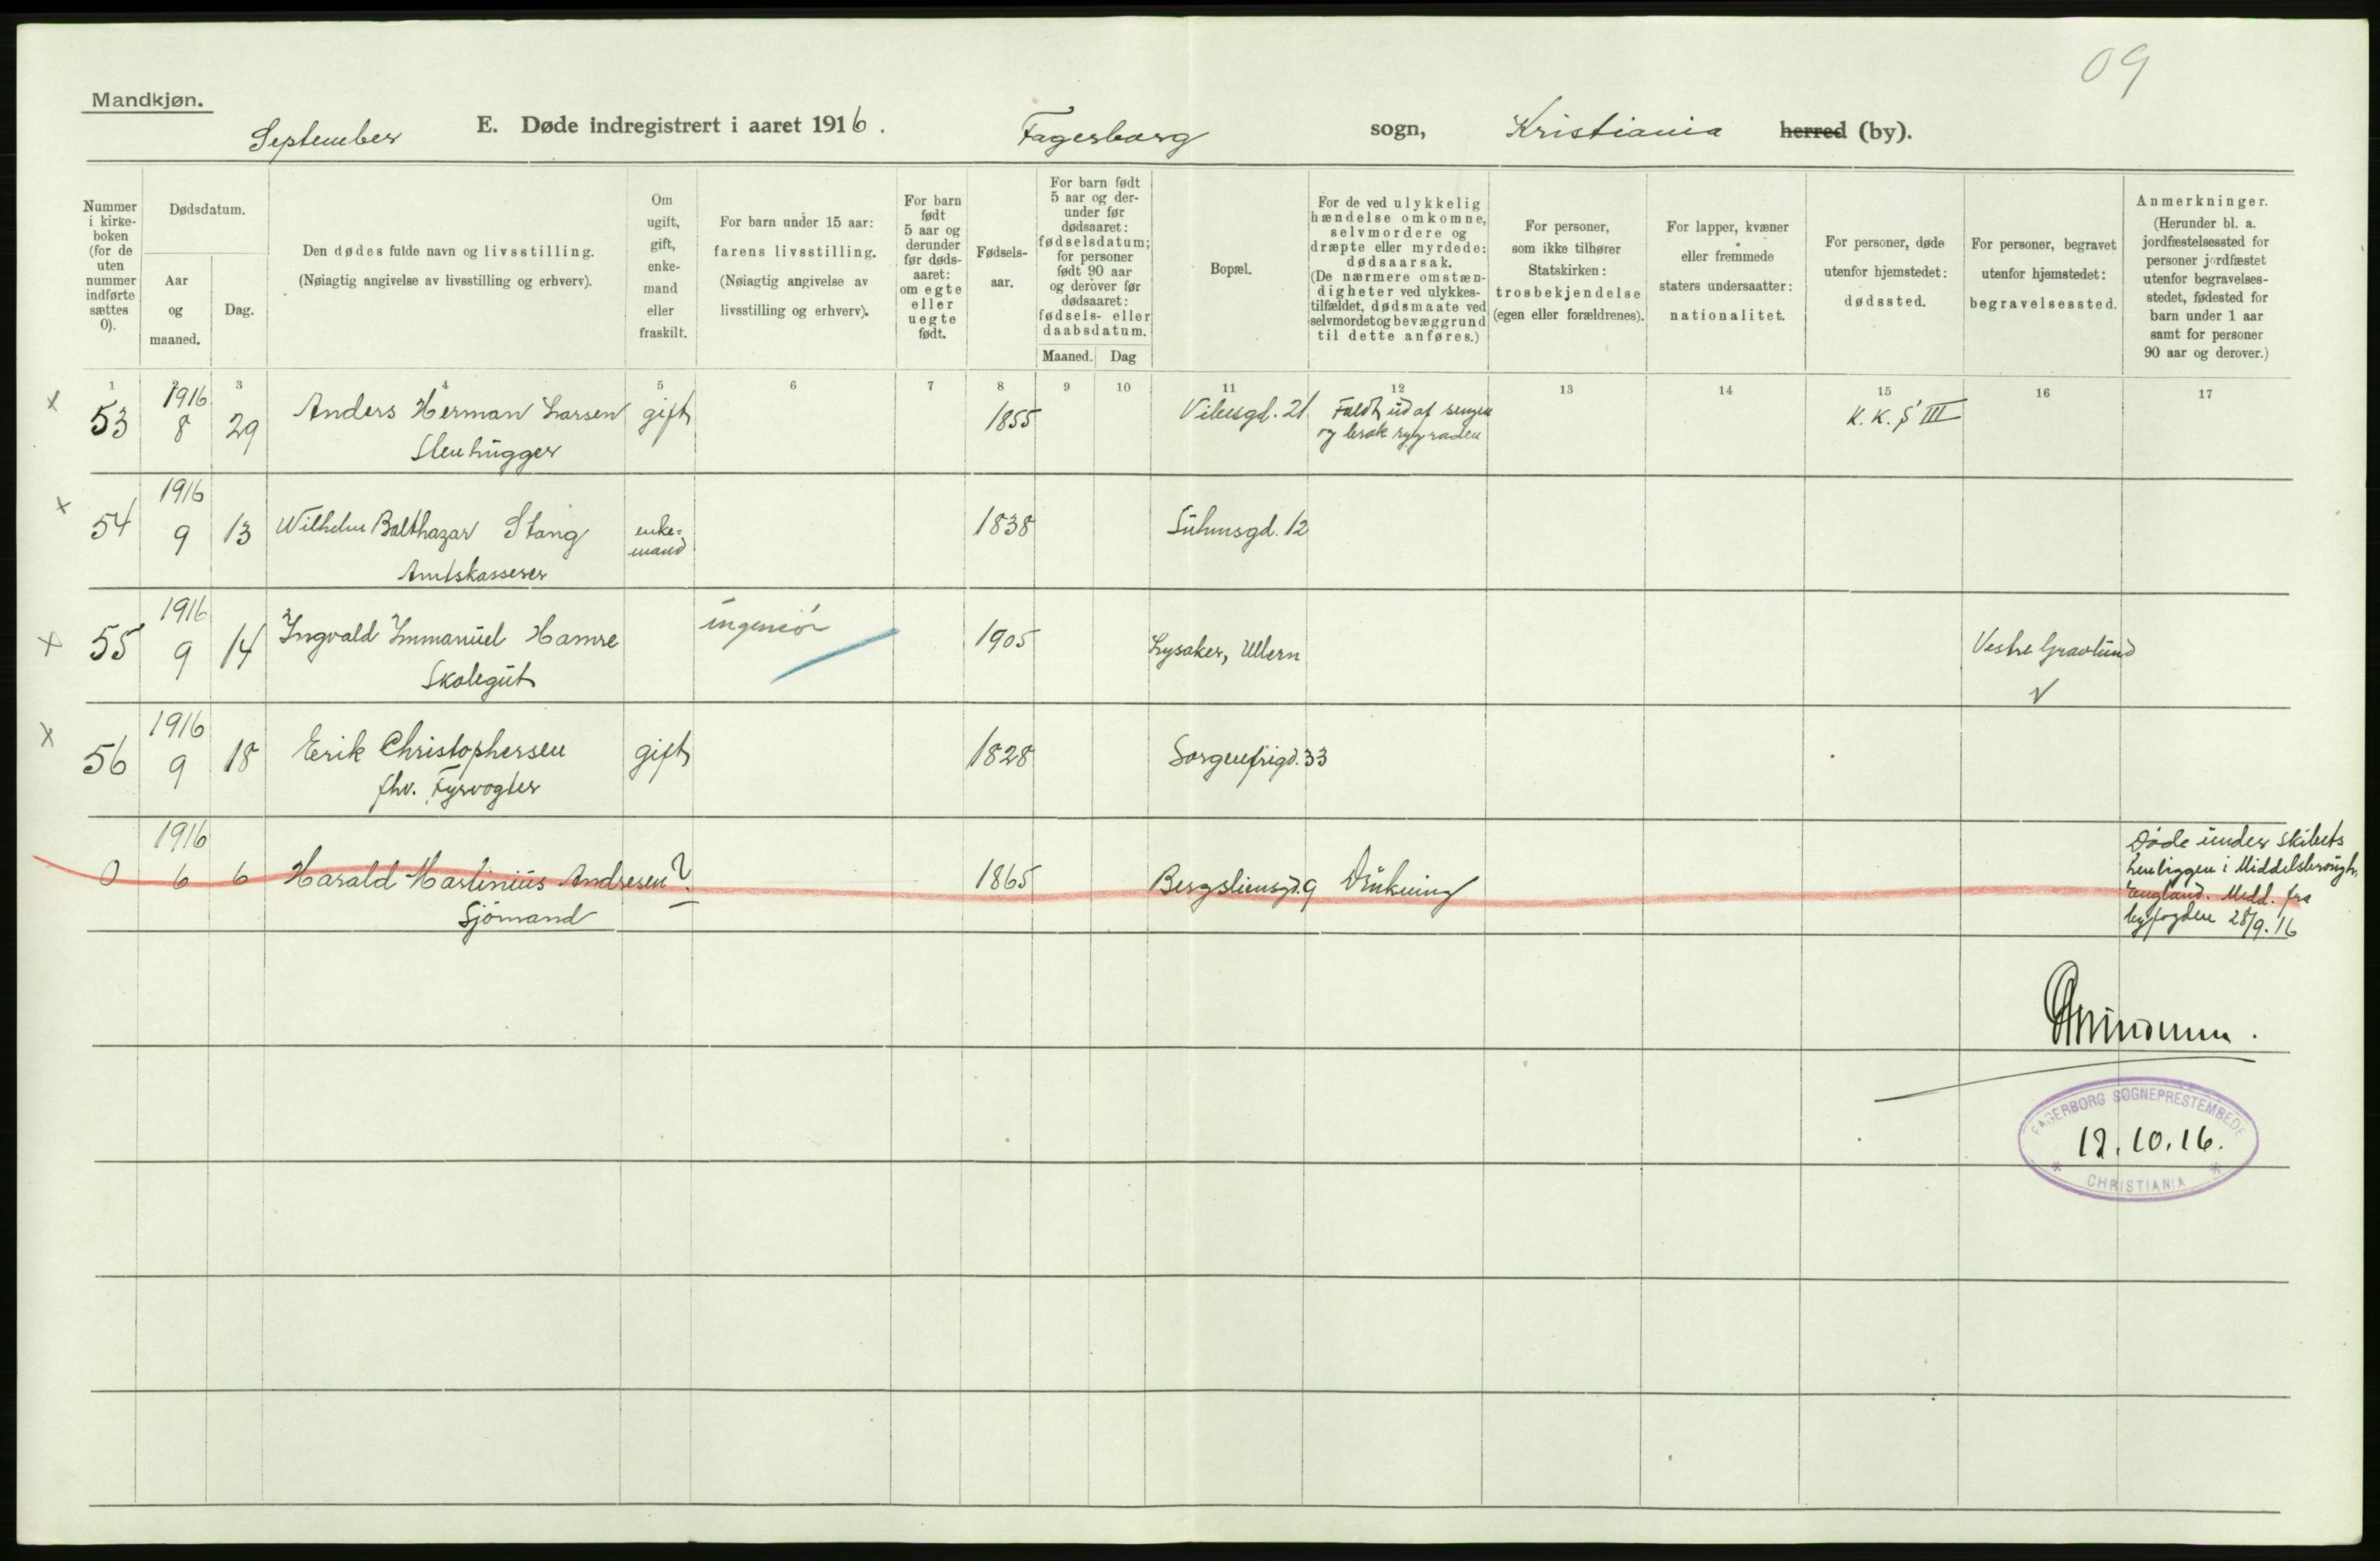 09
Mandkjøn.
September E. Døde indregistrert i aaret 1916. Fagerborg sogn, Kristiania herred (by).
Nummer
i kirke-
boken
(for de
uten
nummer
indførte
sættes
0).
Dødsdatum.
Aar
og
maaned.
Dag.
Den dødes fulde navn og livsstilling.
(Nøiagtig angivelse av livsstilling og erhverv).
Om
ugift,
gift,
enke-
mand
eller
fraskilt.
For barn under 15 aar:
farens livsstilling.
(Nøiagtig angivelse av
livsstilling og erhverv).
For barn
født
5 aar og
derunder
før døds-
aaret:
om egte
eller
uegte
født.
Fødsels-
aar.
For barn født
5 aar og der-
under før
dødsaaret:
fødselsdatum;
for personer
født 90 aar
og derover før
dødsaaret:
fødsels- eller
daabsdatum.
Maaned. Dag
Bopæl.
For de ved ulykkelig
hændelse omkomne,
selvmordere og
dræpte eller myrdede:
dødsaarsak.
(De nærmere omstæn-
digheter ved ulykkes-
tilfældet, dødsmaate ved
selvmordet og bevæggrund
til dette anføres.)
For personer,
som ikke tilhører
Statskirken:
trosbekjendelse
(egen eller forældrenes).
For lapper, kvæner
eller fremmede
staters undersaatter:
nationalitet.
For personer, døde
utenfor hjemstedet:
dødssted.
For personer, begravet
utenfor hjemstedet:
begravelsessted.
Anmerkninger.
(Herunder bl. a.
jordfæstelsessted for
personer jordfæstet
utenfor begravelses-
stedet, fødested for
barn under 1 aar
samt for personer
90 aar og derover.)
1 2 3 4 5 6 7 8 9 10 11 12 13 14 15 16 17
x 53 1916 8 29 Anders Herman Larsen gift 1855 Vibesgd. 21 Faldt ud af sengen K. K. S' III
Stenhugger og brak rygraden
x 54 1916 9 13 Wilhelm Balthazar Stang enke- 1838 Suhmsgd. 12
mand
Amtskasserer
x 55 1916 9 14 Ingvald Immanuel Hamre ingeniør 1905 Lysaker, Ullern Vestre Gravlund
Skolegut
x 56 1916 9 18 Erik Christophersen gift 1828 Sorgenfrigd. 33
fhv. Fyrvogter
0 1916 6 6 Harald Martinius Andresen ? 1865 Bergsliensgd. 9 Drukning
Sjömand
Døde under skibets
henliggen i Middelsbrough,
England. Medd. fra
byfogden 28/9. 16
FAGERBORG SOGNEPRESTEMBEDE
12.10.16.
* CHRISTIANIA *